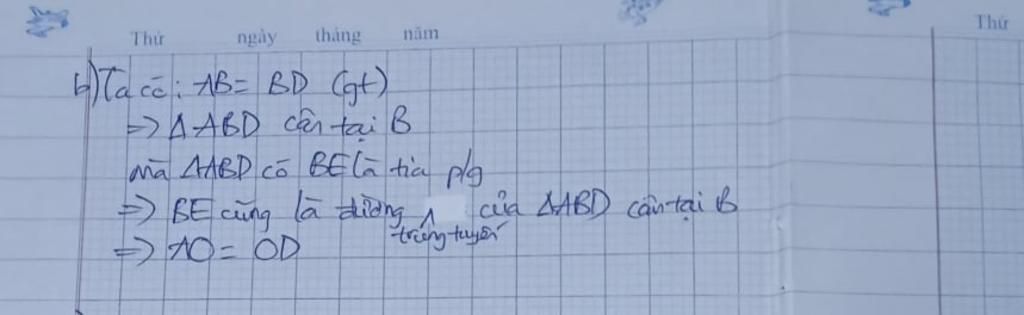 Thứ ngày tháng năm
Thứ
b) Ta có: AB = BD (gt)
=> Δ ABD cân tại B
mà ΔABD có BE là tia p/g
=> BE cũng là đường trung tuyến của ΔABD cân tại B
=> AO = OD